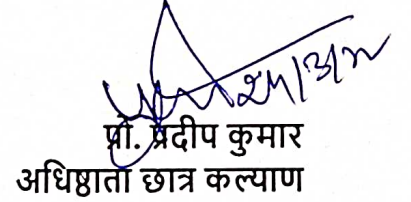 प्रो. प्रदीप कुमार
अधिष्ठाता छात्र कल्याण